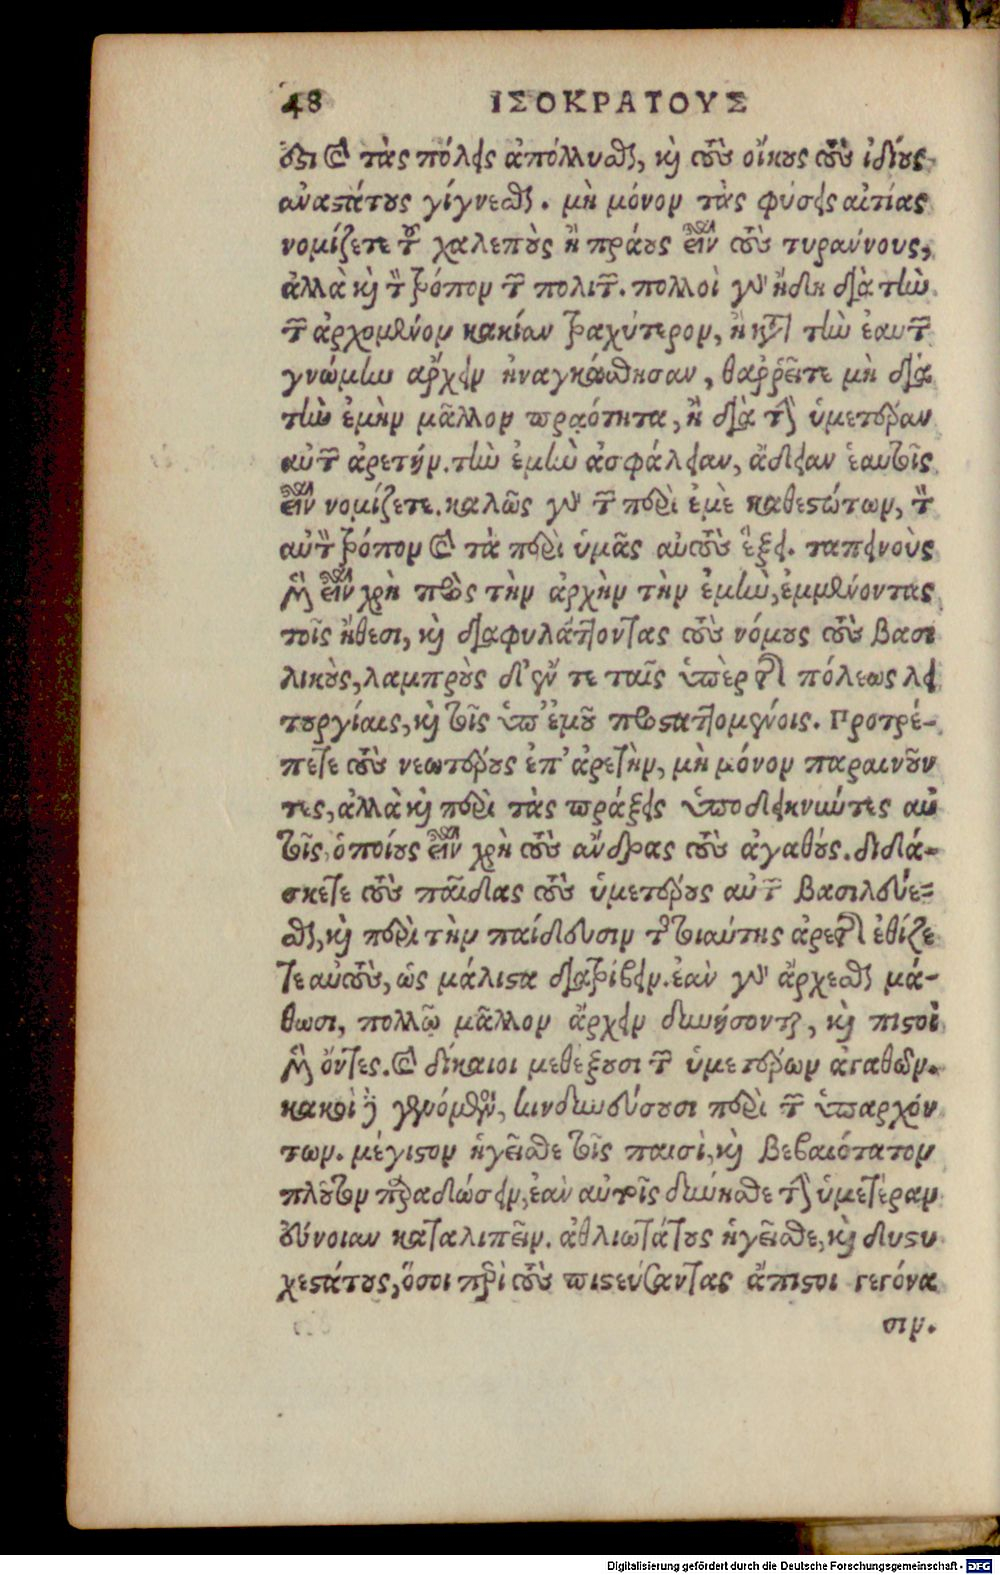 48 ΙΣΟΚΡΑΤΟΥΣ
ουσι καὶ τὰς πόλεις ἀπόλλυσθαι, καὶ τοὺς οἴκους τοὺς ἰδίους
ἀναστάτους γίγνεσθαι. μὴ μόνον τὰς φύσεις αἰτίας
νομίζετε τοῦ χαλεποὺς ἢ πράους εἶναι τοὺς τυράννους,
ἀλλὰ καὶ τὸν τρόπον τῶν πολιτῶν. πολλοὶ γὰρ ἤδη διὰ τὴν
τῶν ἀρχομένων κακίαν τραχύτερον, ἢ κατὰ τὴν ἑαυτῶν
γνώμην ἄρχειν ἠναγκάσθησαν, θαῤῥεῖτε μὴ διὰ
τὴν ἐμὴν μᾶλλον πραότητα, ἢ διὰ τὴν ὑμετέραν
αὐτῶν ἀρετήν. τὴν ἐμὴν ἀσφάλειαν, ἄδειαν ἑαυτοῖς
εἶναι νομίζετε. καλῶς γὰρ τῶν περὶ ἐμὲ καθεστώτων, τὸν
αὐτὸν τρόπον καὶ τὰ περὶ ὑμᾶς αὐτοὺς ἕξει. ταπεινοὺς
μὲν εἶναι χρὴ πρὸς τὴν ἀρχὴν τὴν ἐμὴν, ἐμμένοντας
τοῖς ἤθεσι, καὶ διαφυλάττοντας τοὺς νόμους τοὺς βασι
λικοὺς, λαμπροὺς δ' ἔν τε ταῖς ὑπὲρ τῆς πόλεως λει
τουργίαις, καὶ τοῖς ὑπ' ἐμοῦ προσταττομένοις. Προτρέ-
πετε τοὺς νεωτέρους ἐπ' ἀρετὴν, μὴ μόνον παραινοῦν
τες, ἀλλὰ καὶ περὶ τὰς πράξεις ὑποδεικνύντες αὐ
τοῖς, ὁποίους εἶναι χρὴ τοὺς ἄνδρας τοὺς ἀγαθούς. διδά-
σκετε τοὺς παῖδας τοὺς ὑμετέρους αὐτῶν βασιλεύε-
σθαι, καὶ περὶ τὴν παίδευσιν τῆς τοιαύτης ἀρετῆς ἐθίζε
τε αὐτοὺς, ὡς μάλιστα διατρίβειν. ἐὰν γὰρ ἄρχεσθαι μά-
θωσι, πολλῷ μᾶλλον ἄρχειν δυνήσονται, καὶ πιστοὶ
μὲν ὄντες. καὶ δίκαιοι μεθέξουσι τῶν ὑμετέρων ἀγαθῶν.
κακοὶ δὲ γενόμενοι, κινδυνεύσουσι περὶ τῶν ὑπαρχόν
των. μέγιστον ἡγεῖσθε τοῖς παισὶ, καὶ βεβαιότατον
πλοῦτον παραδώσειν, ἐὰν αὐτοῖς δύνησθε τὴν ὑμετέραν
εὔνοιαν καταλιπεῖν. ἀθλιωτάτους ἡγεῖσθε, καὶ δυστυ
χεστάτους, ὅσοι περὶ τοὺς πιστεύσαντας ἄπιστοι γεγόνα
σιν.
Digitalisierung gefördert durch die Deutsche Forschungsgemeinschaft - DFG